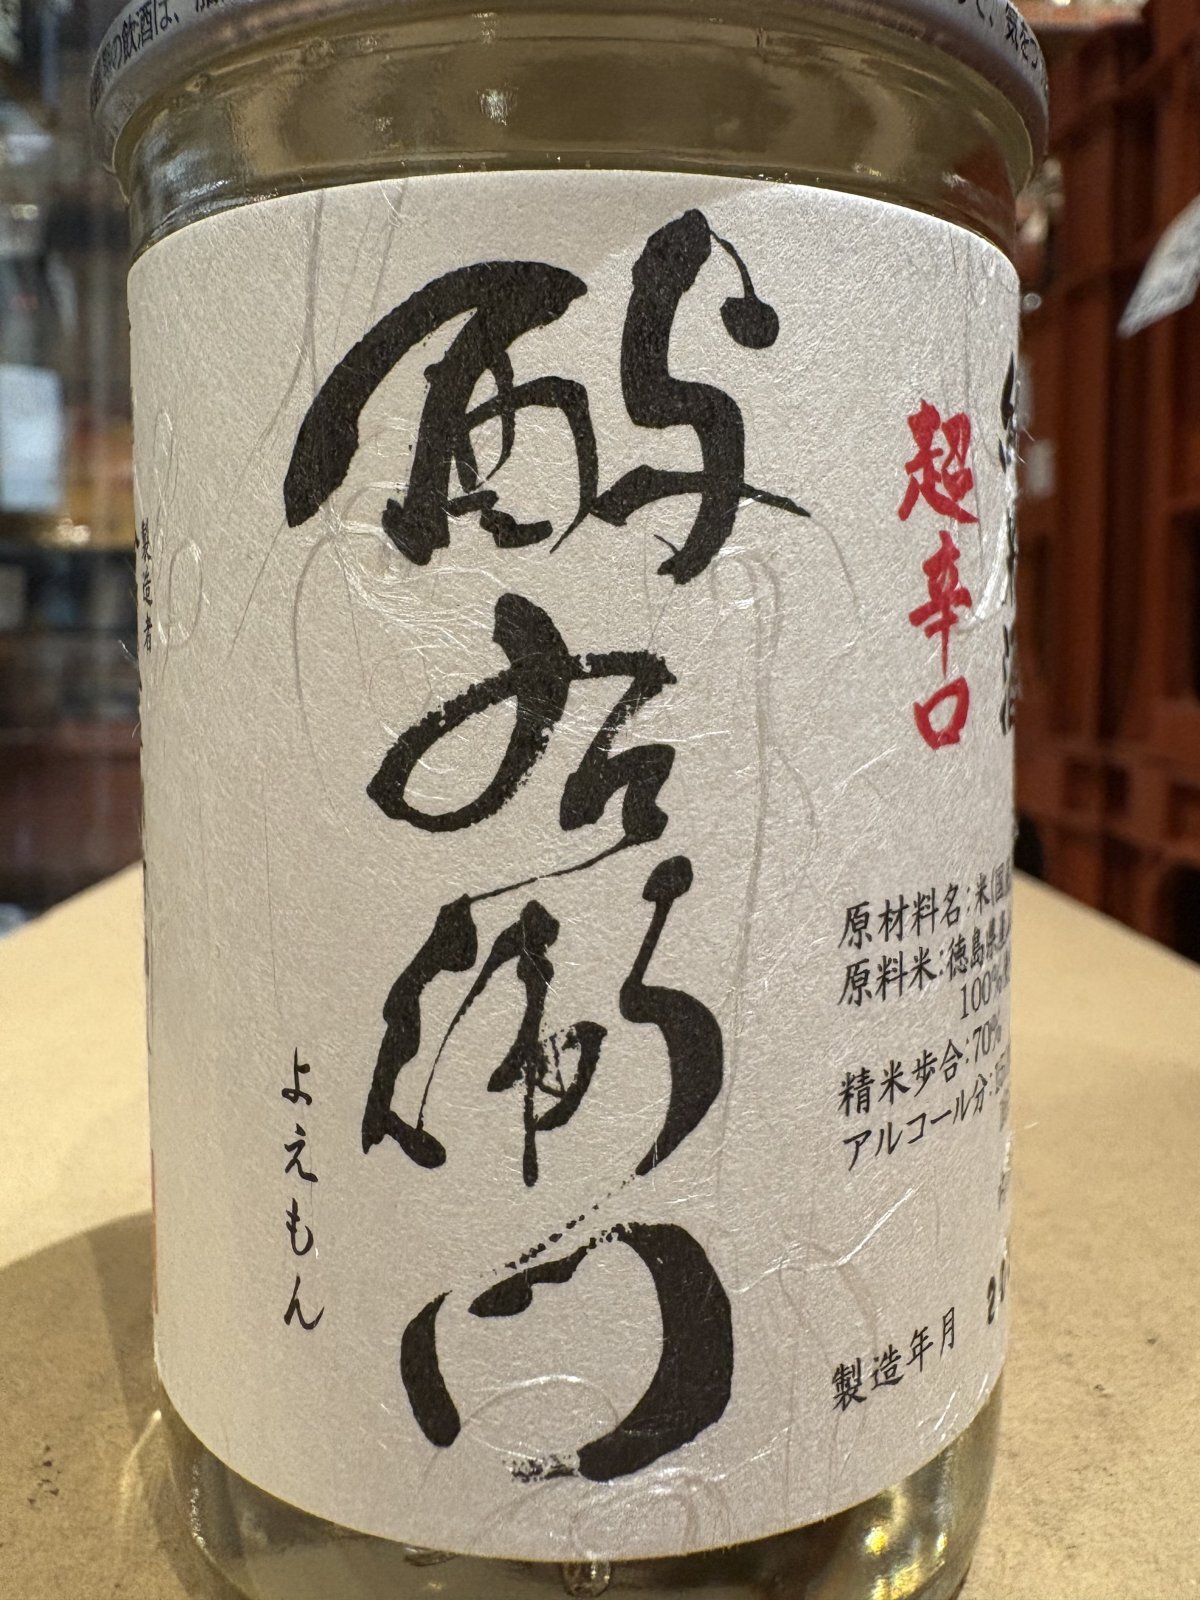 の飲酒は、
気をつ
酔右衛門
よえもん
超辛口
原材料名:米(国
原料米:徳島県産
100%
精米歩合:70%
アルコール分:
製造年月
製造者